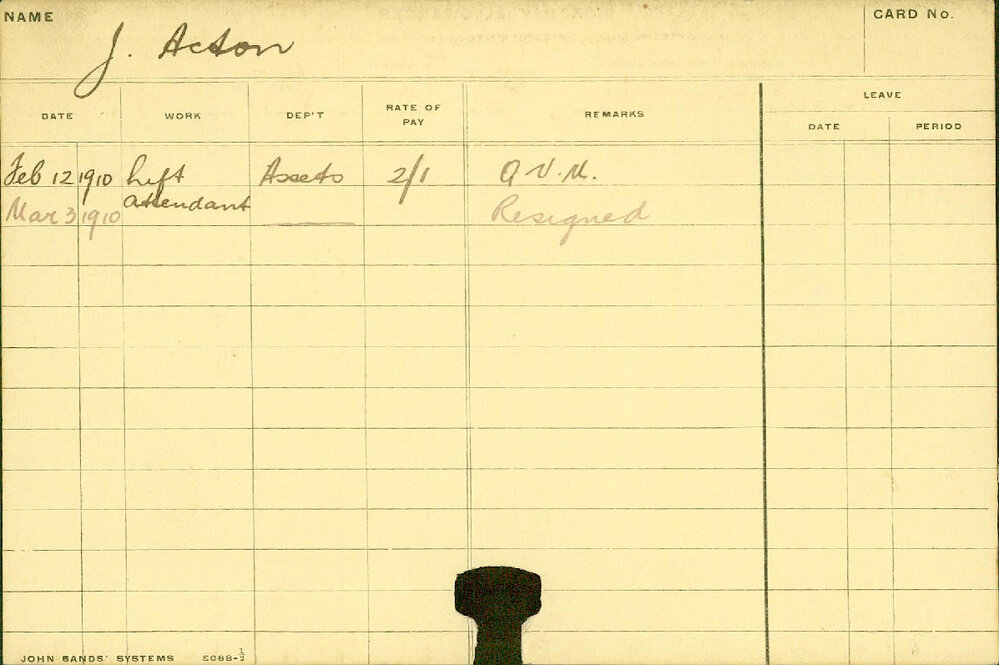 NAME J. Acton CARD No.
LEAVE
DATE WORK DEP'T RATE OF PAY REMARKS DATE PERIOD
Feb 12 1910 Lift attendant Assets 2/1 Q.V.M.
Mar 3 1910 Resigned
JOHN SANDS' SYSTEMS 5068-½